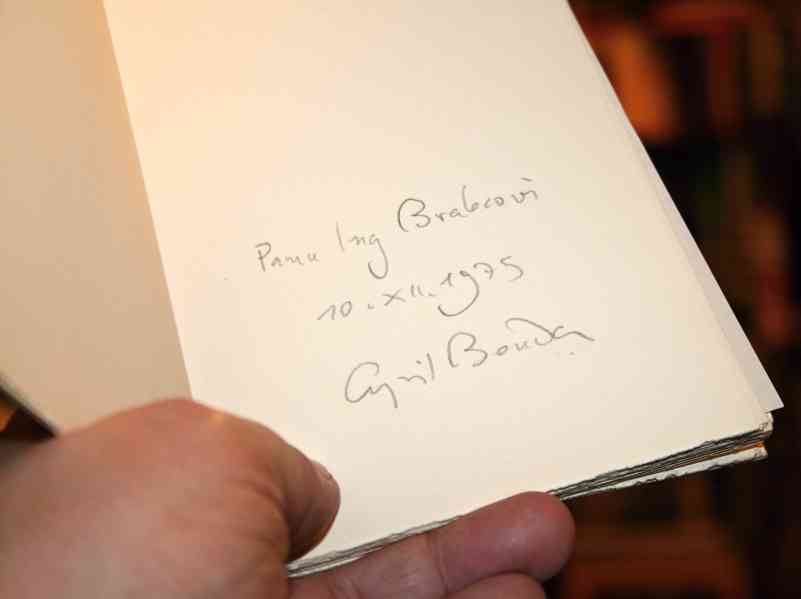 Panu Ing Brabcovi
10.XII.1975
Cyril Bouda